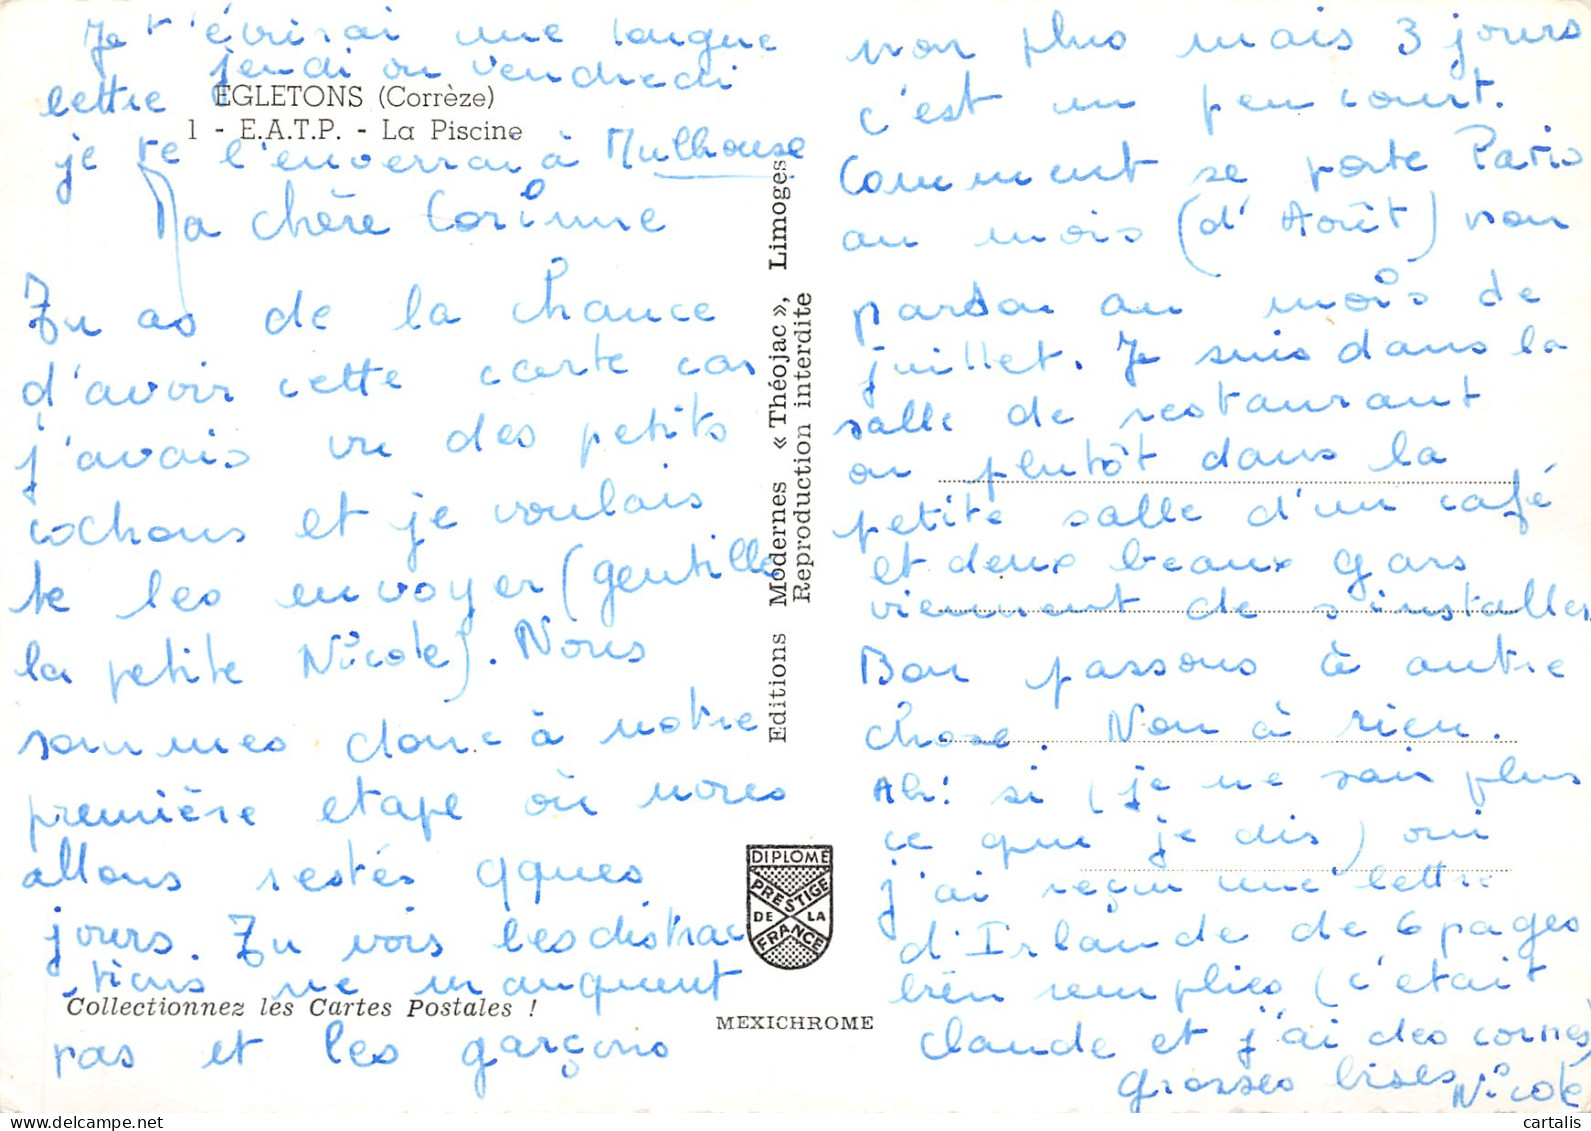 Je t'écrirai une longue
jeudi ou vendredi
lettre
EGLETONS (Corrèze)
1 - E.A.T.P. - La Piscine
je te l'enverrai à Mulhouse
Ma chère Corinne
Tu as de la chance
d'avoir cette carte car
j'avais vu des petits
cochons et je voulais
te les envoyer (gentille
la petite Nicole). Nous
sommes donc à notre
première etape où nores
allons restés qques
jours. Tu vois les distrac
tions ne manquent
Collectionnez les Cartes Postales !
pas et les garçons
Editions Modernes « Théojac », Limoges
Reproduction interdite
DIPLOME
PRESTIGE
DE LA
FRANCE
MEXICHROME
non plus mais 3 jours
c'est un peu court.
Comment se porte Paris
au mois (d'Août) non
pardon au mois de
juillet. Je suis dans la
salle de restaurant
ou plutôt dans la
petite salle d'un café
et deux beaux gars
viennent de s'installer
Bon passons à autre
chose. Non à rien.
Ah! si (je ne sais plus
ce que je dis) oui
j'ai reçu une lettre
d'Irlande de 6 pages
bien remplies (c'etait
claude et j'ai des cornes)
grosses bises Nicole
carte-postale cartalis